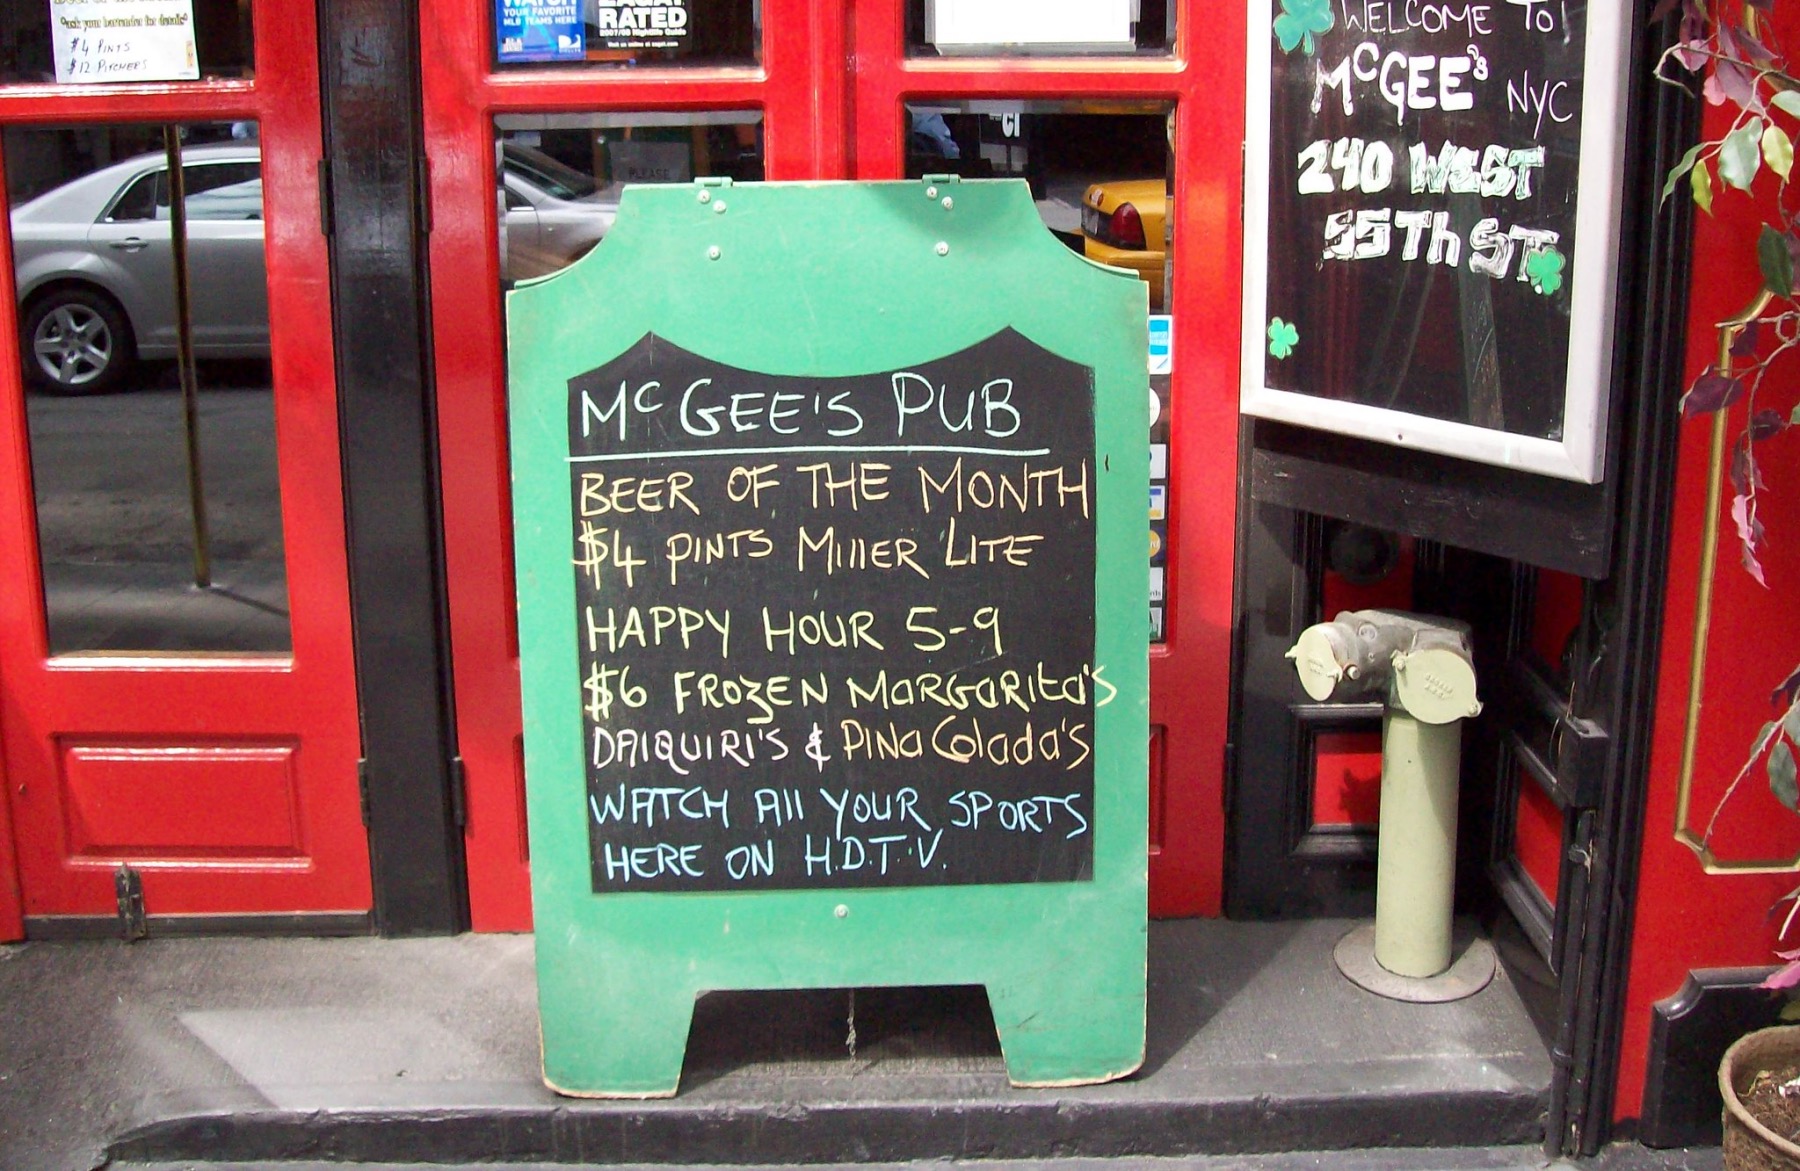 "ask your bartender for details"
$4 PINTS
$12 PITCHERS
WATCH
YOUR FAVORITE
MLB TEAMS HERE
ZAGAT
RATED
2007/08 Nightlife Guide
PLEASE
WELCOME TO!
McGEE's NYC
240 WEST
55Th ST
McGEE'S PUB
BEER OF THE MONTH
$4 PINTS MIllER LITE
HAPPY HOUR 5-9
$6 FROZEN MARGARITA'S
DAIQUIRI'S & PINA Colada'S
WATCH All YOUR SPORTS
HERE ON H.D.T.V.